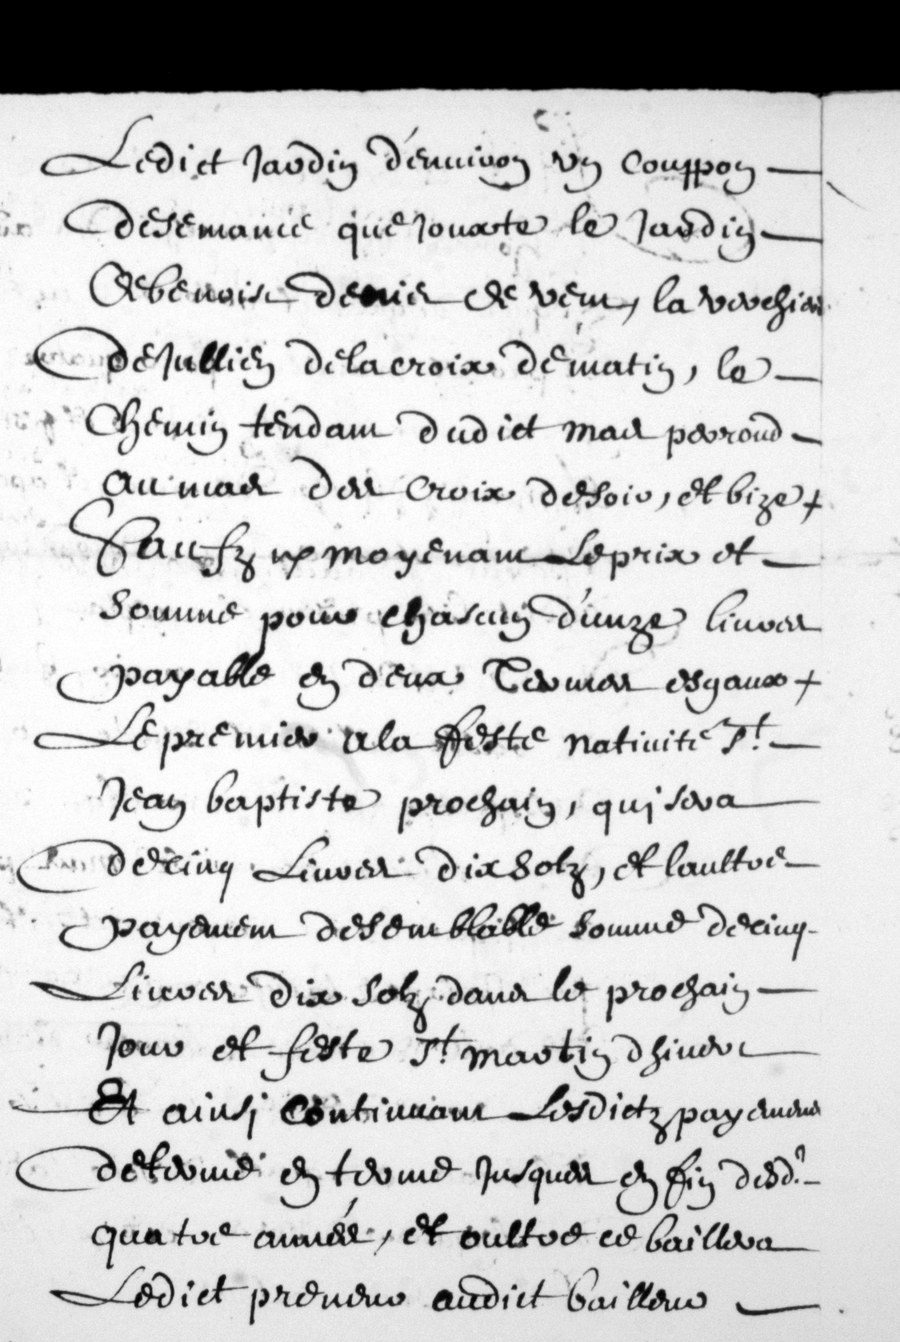 Ledict Jardin d'environ un couppon
de semance que Jouxte le Jardin
de benoist denis de vent, la verchiere
de Jullien delacroix de matin, le
Chemin tendant dudict mas perroud
au mas des Croix de soir, et bize
Saufz moyenant Le prix et
somme pour chascun d'unze livres
payable en deux Termes esgaux
Le premier a la feste nativité St.
Jean baptiste prochain, qui sera
de cinq Livres dix solz, et laultre
payement de semblable somme de cinq
Livres dix solz dans le prochain
Jour et feste St. martin dhiver
Et ainsi Continuant Lesdictz payements
de terme en terme Jusques en fin desd.
quatre année, et oultre ce baillera
Ledict preneur audict bailleur